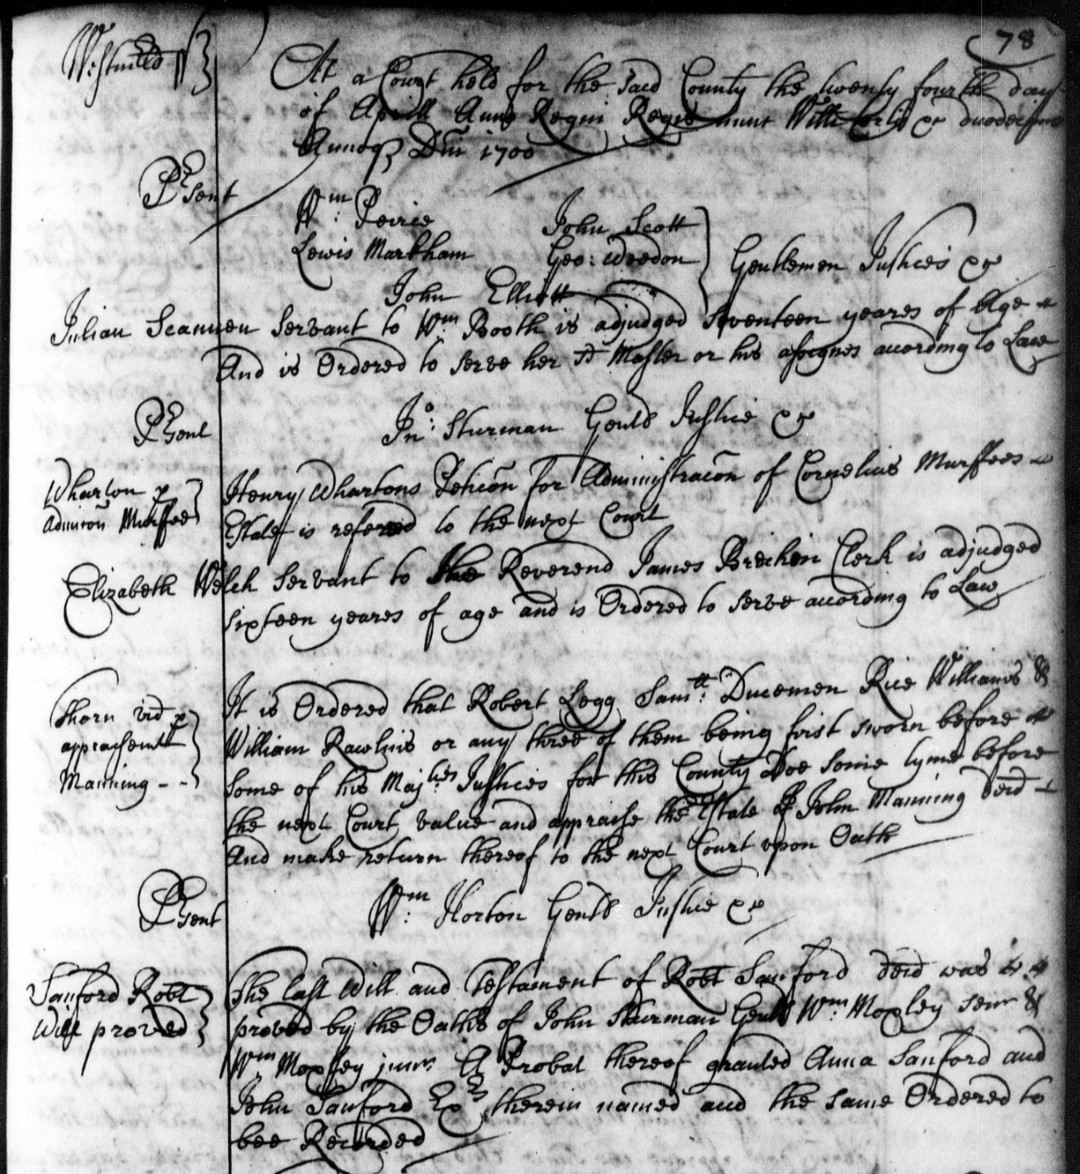 78
Westmrld
At a Court held for the said County the twenty fourth day
of Aprill Anno Regni Regis nunc Willi tertii &c duodecimo
Annoq Dm 1700
Psent
Wm: Peirce John Scott
Lewis Markham Geo: Weedon Gentlemen Justices &c
John Elliott
Julian Scannen Servant to Wm Booth is adjudged Seventeen yeares of Age
And is Ordered to serve her sd Master or his assignes according to Law
Psent Jno: Sturman Gentl Justice &c
Wharton p
Admcon Murffee
Henry Whartons Peticon for Administracon of Cornelius Murffees
Estate is referred to the next Court
Elizabeth Welch Servant to the Reverend James Brechin Clerk is adjudged
sixteen yeares of age and is Ordered to serve according to Law
Thorn vid p
appraisemt
Manning - -
It is Ordered that Robert Legg Samll: Ducemen Rice Williams &
William Rawlins or any three of them being first sworn before
some of his Majties Justices for this County doe some tyme before
the next Court value and appraise the Estate of John Manning decd
And make return thereof to the next Court upon Oath
Psent Wm: Horton Gentl Justice &c
Sanford Robt
Will proved
The last Will and Testament of Robt Sanford decd was
proved by the Oaths of John Sturman Gentl Wm Moxley senr &
Wm Moxley junr A Probat thereof granted Anna Sanford and
John Sanford Exrs therein named and the same Ordered to
bee Recorded